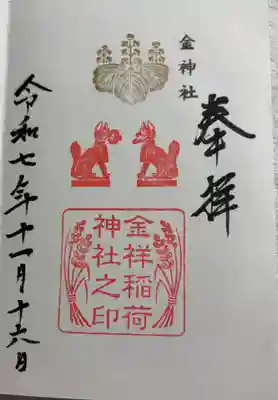 奉拝
金神社
金祥稲荷
神社之印
令和七年十一月十六日